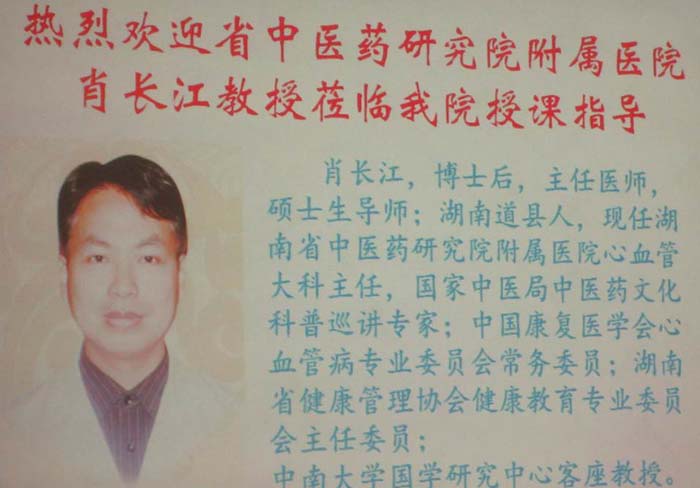 热烈欢迎省中医药研究院附属医院
肖长江教授莅临我院授课指导
肖长江，博士后，主任医师，
硕士生导师；湖南道县人，现任湖
南省中医药研究院附属医院心血管
大科主任，国家中医局中医药文化
科普巡讲专家；中国康复医学会心
血管病专业委员会常务委员；湖南
省健康管理协会健康教育专业委员
会主任委员；
中南大学国学研究中心客座教授。